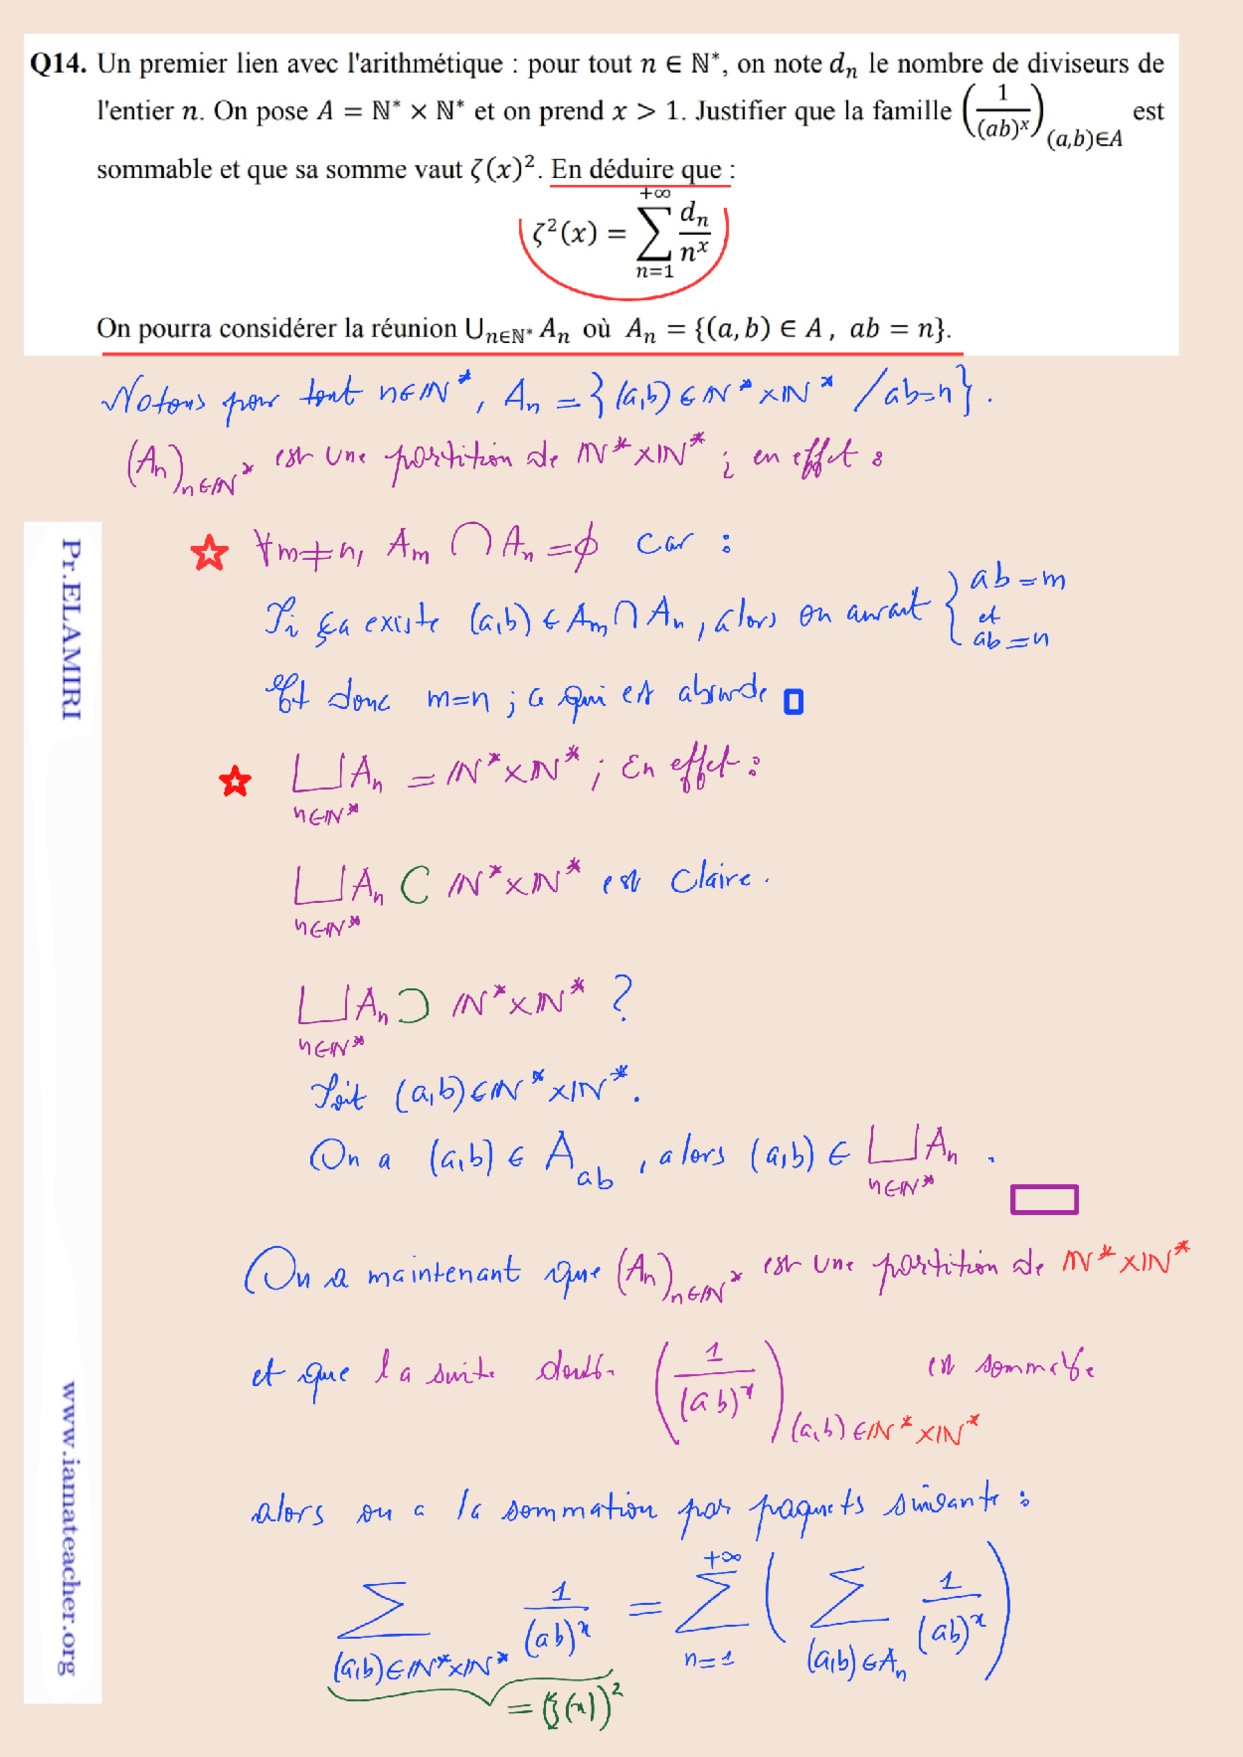 Q14. Un premier lien avec l'arithmétique : pour tout n ∈ ℕ*, on note dₙ le nombre de diviseurs de
l'entier n. On pose A = ℕ* × ℕ* et on prend x > 1. Justifier que la famille (1/(ab)ˣ)₍ₐ,b₎∈A est
sommable et que sa somme vaut ζ(x)². En déduire que :
ζ²(x) = ∑_{n=1}^{+∞} dₙ/nˣ
On pourra considérer la réunion ∪_{n∈ℕ*} Aₙ où Aₙ = {(a, b) ∈ A , ab = n}.
Notons pour tout n∈ℕ*, Aₙ = {(a,b) ∈ ℕ*×ℕ* / ab=n}.
(Aₙ)_{n∈ℕ*} est une partition de ℕ*×ℕ* ; en effet :
☆ ∀m≠n, Aₘ ∩ Aₙ = ϕ car :
Si ça existe (a,b) ∈ Aₘ ∩ Aₙ, alors on aurait { ab=m et ab=n
Et donc m=n ; ce qui est absurde
☆ ⊔_{n∈ℕ*} Aₙ = ℕ*×ℕ* ; En effet :
⊔_{n∈ℕ*} Aₙ ⊂ ℕ*×ℕ* est Claire.
⊔_{n∈ℕ*} Aₙ ⊃ ℕ*×ℕ* ?
Soit (a,b)∈ℕ*×ℕ*.
On a (a,b) ∈ A_{ab}, alors (a,b) ∈ ⊔_{n∈ℕ*} Aₙ .
On a maintenant que (Aₙ)_{n∈ℕ*} est une partition de ℕ*×ℕ*
et que la suite double (1/(ab)ˣ)_{(a,b)∈ℕ*×ℕ*} est sommable
alors on a la sommation par paquets suivante :
∑_{(a,b)∈ℕ*×ℕ*} 1/(ab)ˣ = ∑_{n=1}^{+∞} ( ∑_{(a,b)∈Aₙ} 1/(ab)ˣ )
= (ζ(x))²
Pr.ELAMIRI
www.iamateacher.org